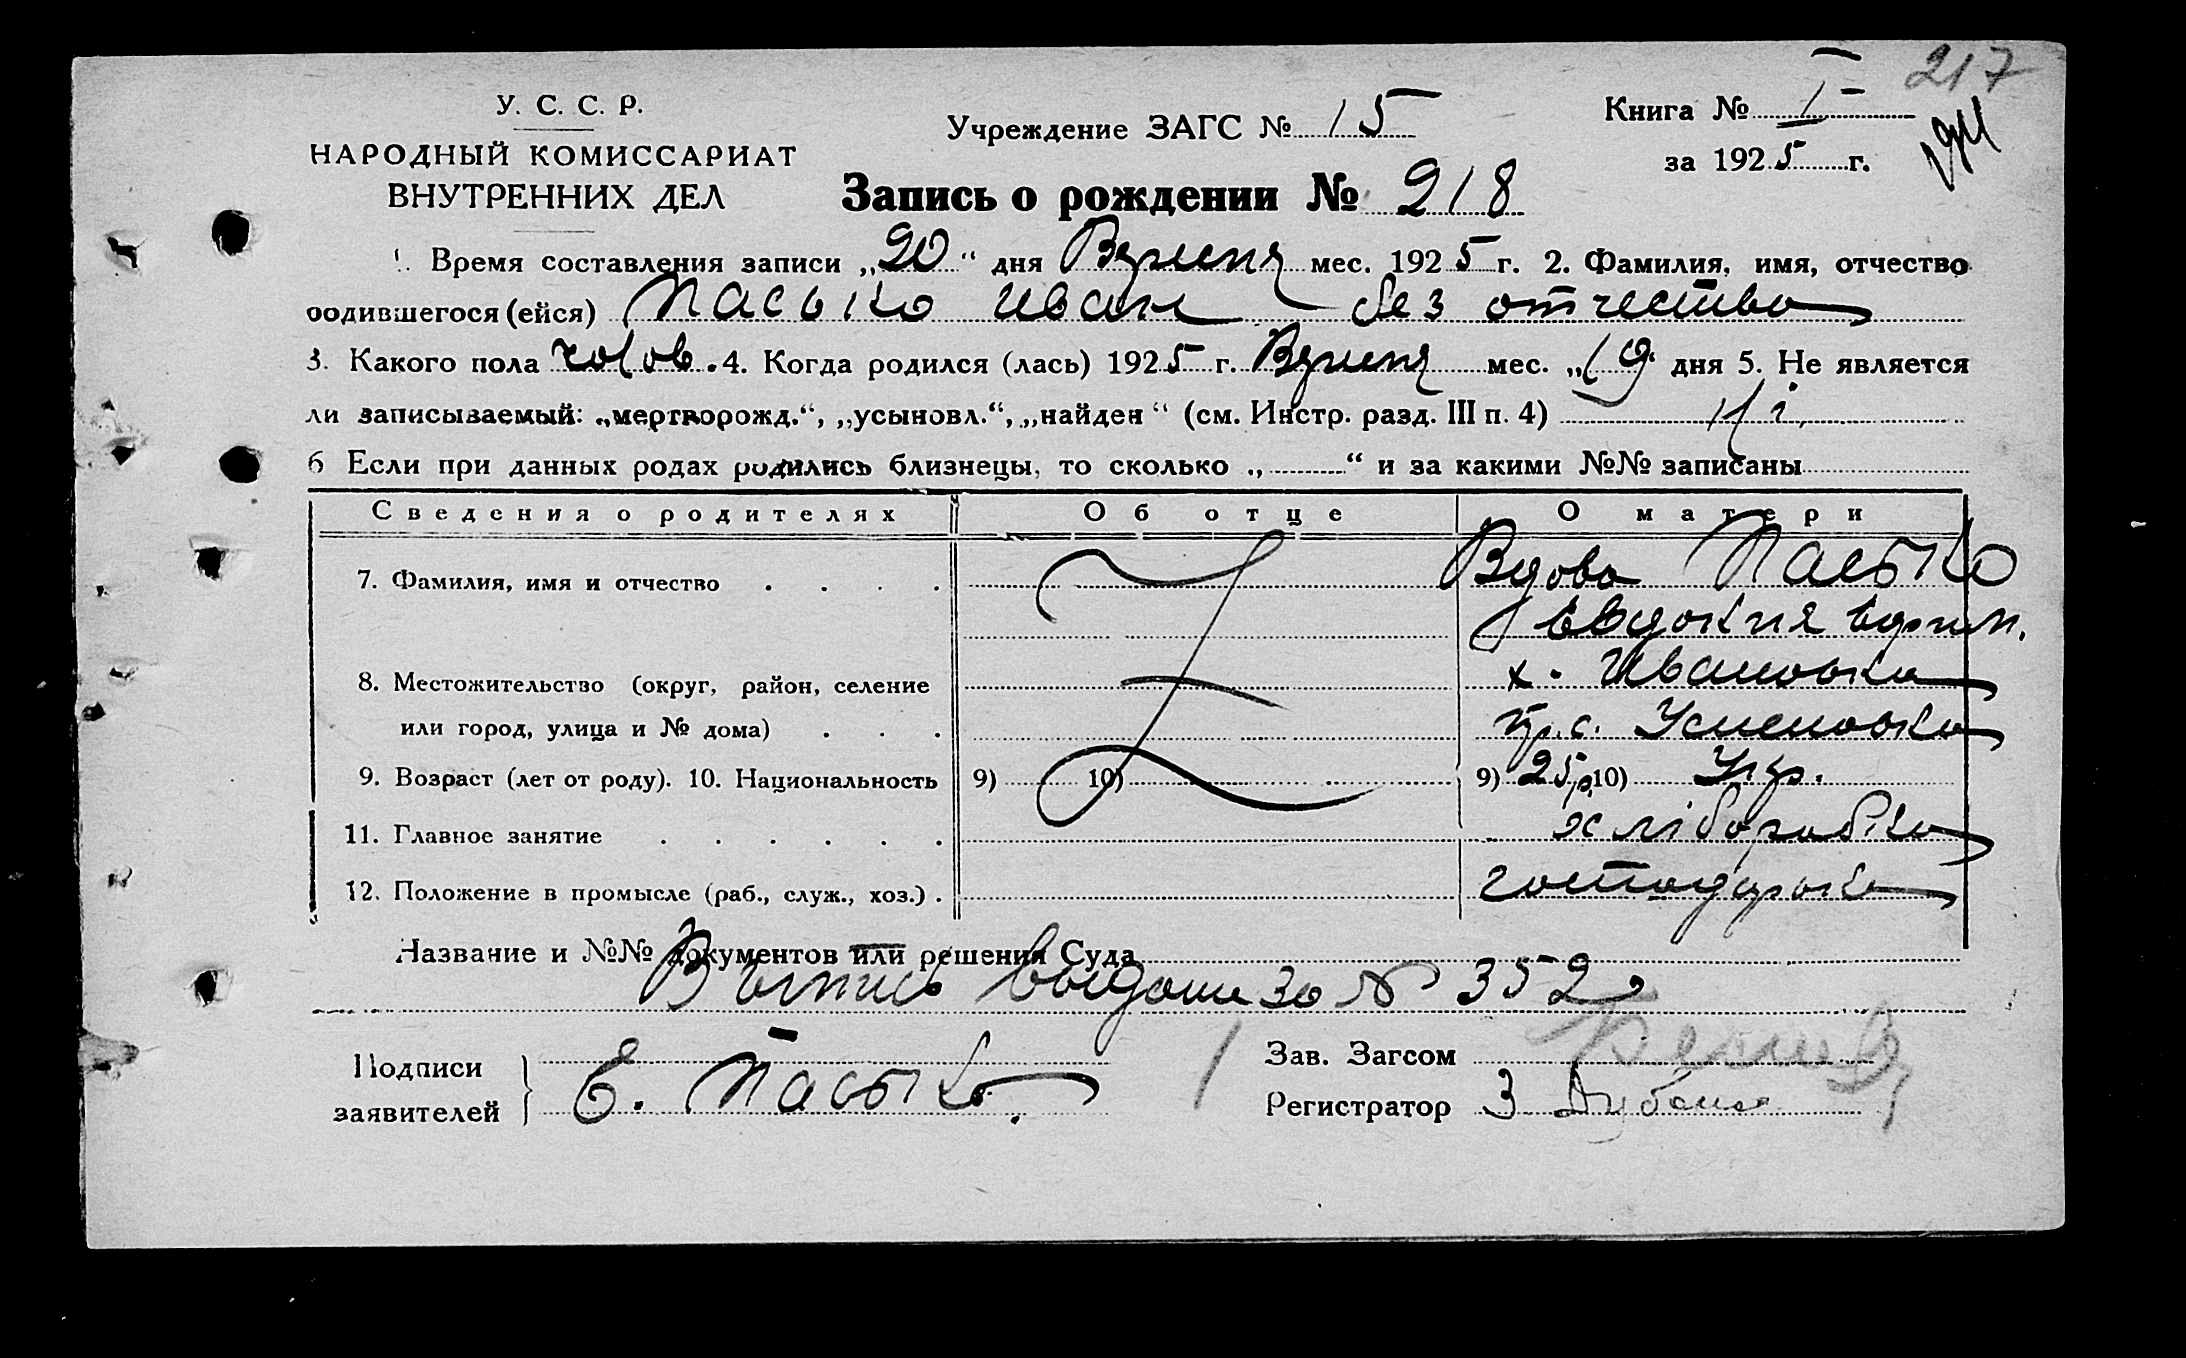 217
У. С. С. Р.
НАРОДНЫЙ КОМИССАРИАТ
ВНУТРЕННИХ ДЕЛ
Учреждение ЗАГС № 15
Книга № I
за 1925 г.
Запись о рождении № 218
1. Время составления записи „20“ дня Вересня мес. 1925 г. 2. Фамилия, имя, отчество
родившегося (ейся) Пасько Иван без отчества
3. Какого пола чолов. 4. Когда родился (лась) 1925 г. Вересня мес. „19 дня 5. Не является
ли записываемый: „мертворожд.“, „усыновл.“, „найден“ (см. Инстр. разд. III п. 4) Ні
6 Если при данных родах родились близнецы, то сколько „ “ и за какими №№ записаны
Сведения о родителях Об отце О матери
7. Фамилия, имя и отчество Вдова Пасько
Евдокия Ефим.
8. Местожительство (округ, район, селение х. Ивановка
или город, улица и № дома) с. Успеновка
9. Возраст (лет от роду). 10. Национальность 9) 10) 9) 25 р. 10) Укр.
11. Главное занятие хліборобка
12. Положение в промысле (раб., служ., хоз.) господарька
Название и №№ документов или решения Суда
Выпись выдана за № 352
Подписи
заявителей Е. Пасько.
Зав. Загсом
Регистратор З